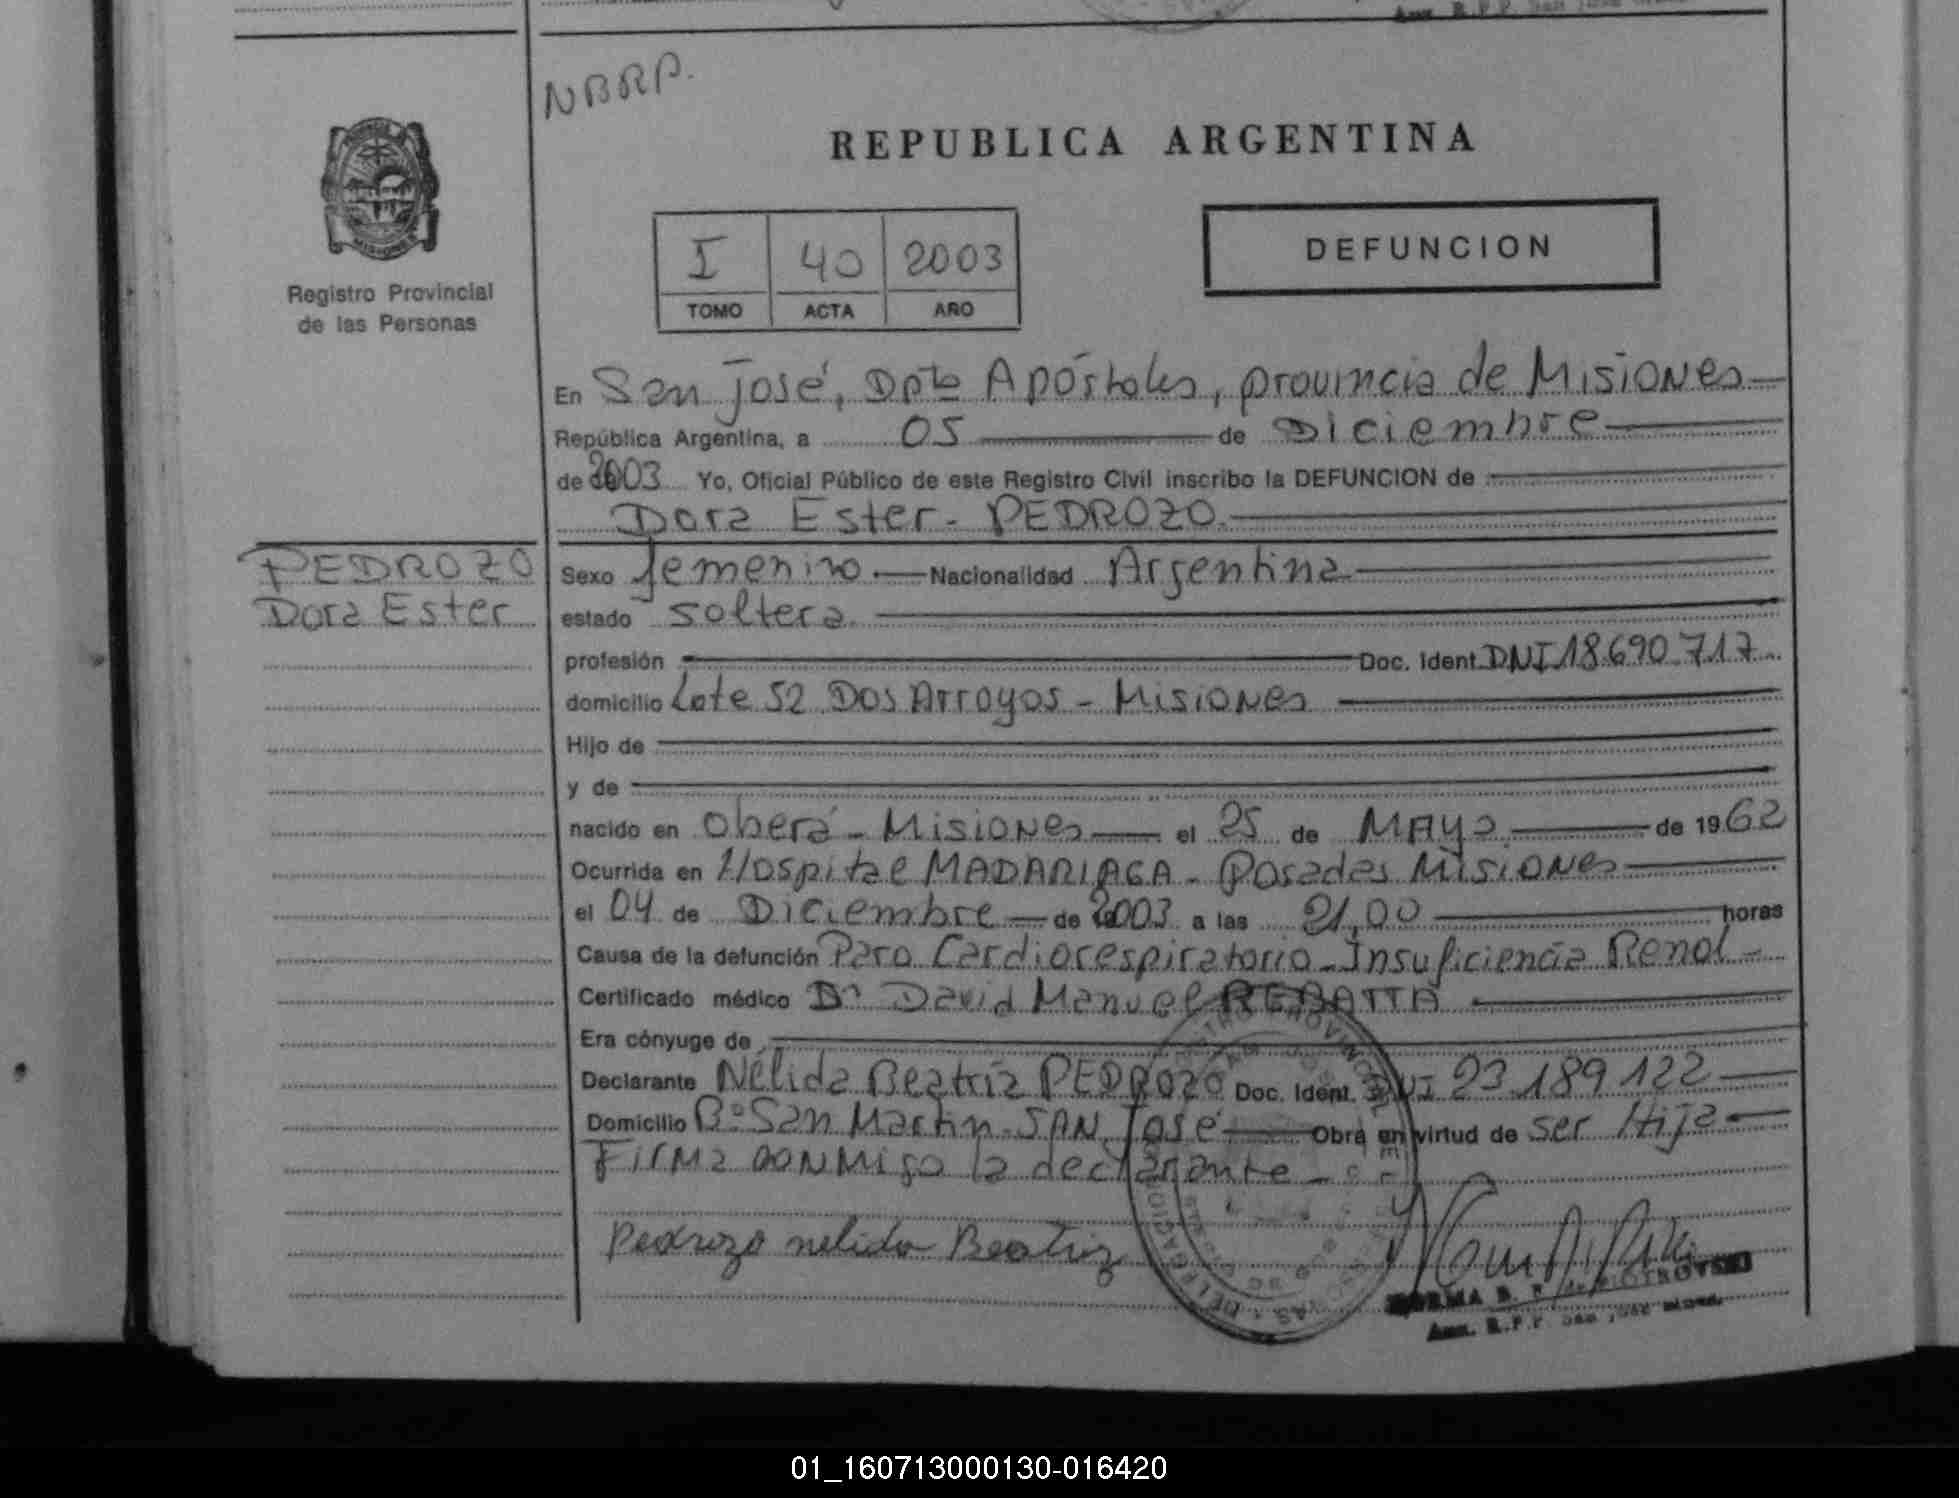 NBRP.
REPUBLICA ARGENTINA
MISIONES
Registro Provincial
de las Personas
I 40 2003
TOMO ACTA AÑO
DEFUNCION
En San José, Dpto Apóstoles, provincia de Misiones
República Argentina, a 05 de Diciembre
de 2003 Yo, Oficial Público de este Registro Civil inscribo la DEFUNCION de
Dora Ester - PEDROZO
PEDROZO
Dora Ester
Sexo femenino Nacionalidad Argentina
estado soltera
profesión Doc. Ident. DNI 18.690.717
domicilio Lote 52 Dos Arroyos - Misiones
Hijo de
y de
nacido en Oberá - Misiones el 25 de MAYO de 1962
Ocurrida en Hospital MADARIAGA - Posadas Misiones
el 04 de Diciembre de 2003 a las 21,00 horas
Causa de la defunción Paro Cardiorespiratorio - Insuficiencia Renal -
Certificado médico Dr David Manuel REBATTA
Era cónyuge de
Declarante Nélida Beatríz PEDROZO Doc. Ident. DNI 23.189.122
Domicilio Bº San Martín - SAN José Obra en virtud de ser Hija
Firma conmigo la declarante -
Pedrozo nelida Beatriz
NORMA B. de PIOTROVSKI
R.P.P. San José
01_160713000130-016420